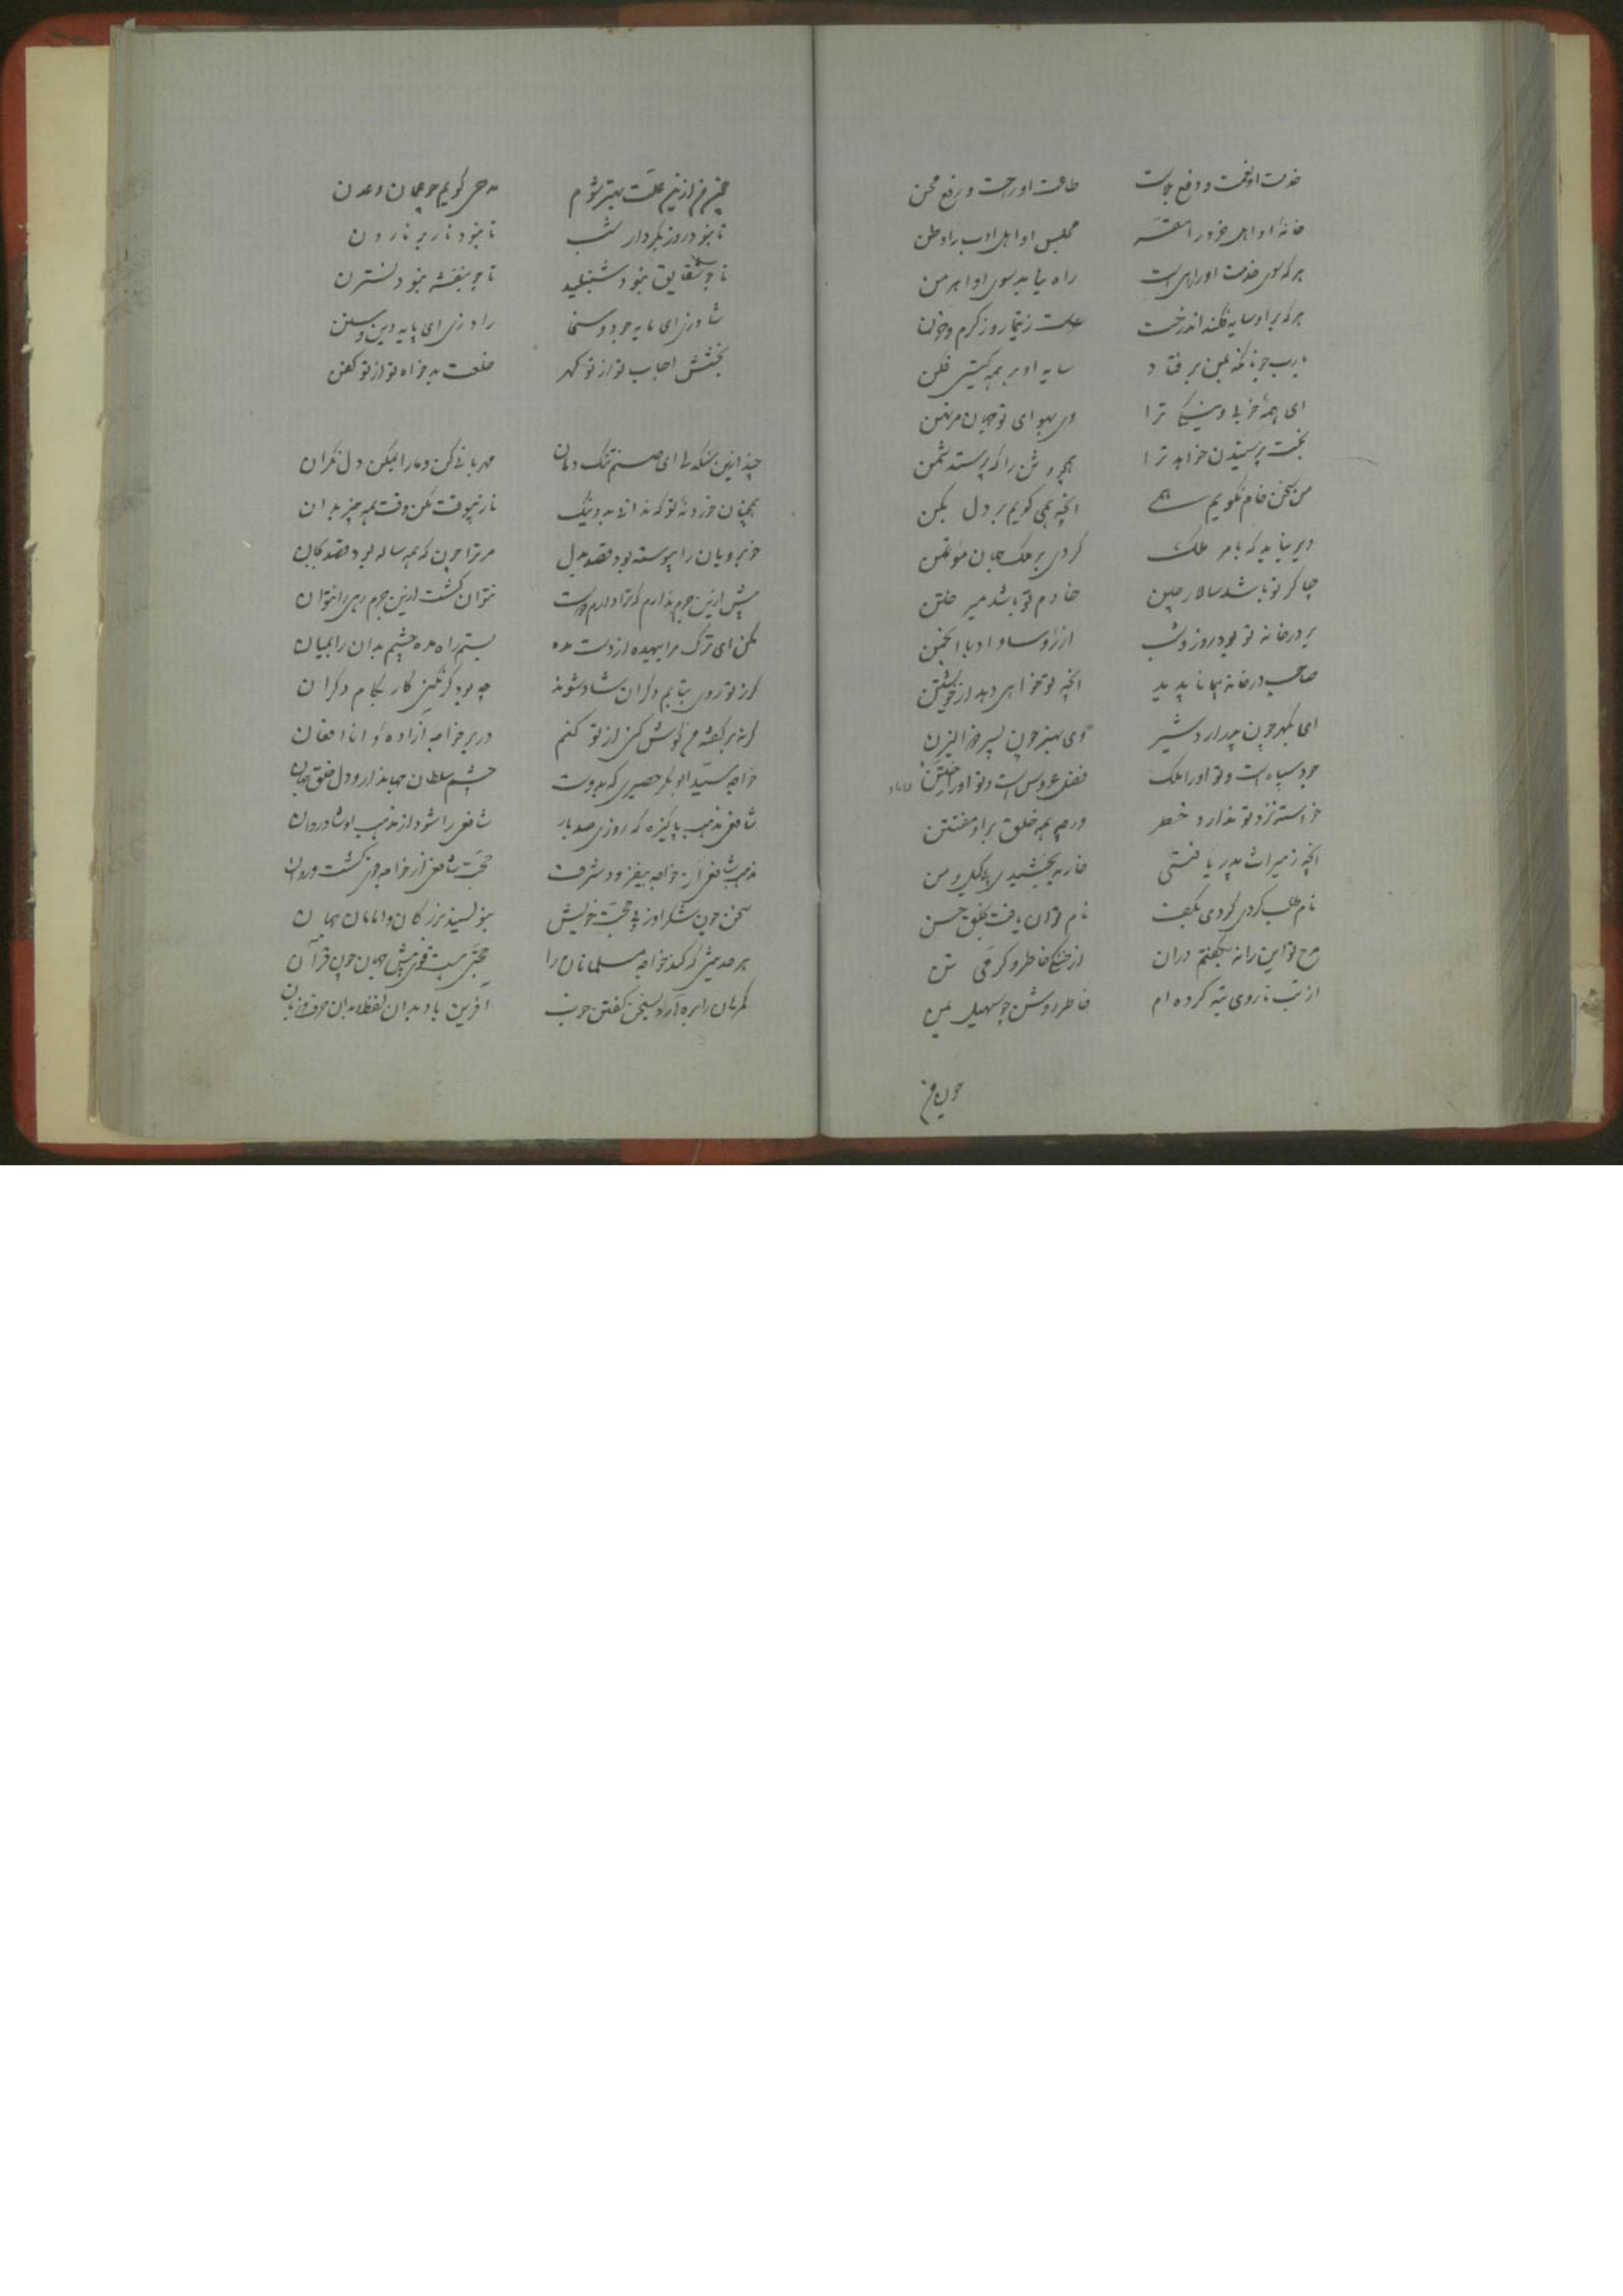 خدمت او نعمت و دفع بلاست طاعت او رحمت و رفع محن
خانهٔ او اهل خرد را مقر مجلس او اهل ادب را وطن
هر که سوی خدمت او راه جست راه نیابد سوی او اهرمن
هر که بر او سایه فکند آن درخت رست ز تیمار و ز کرم و حزن
یارب چونانکه بمن بر فتاد سایه او بر همه گیتی فکن
ای همهٔ خوبی و نیکی ترا وی بهوای تو جهان مرتهن
بخت پرستیدن خواهد ترا همچو وثن را که پرستد شمن
من سخن خام نگویم همی آنچه همی گویم بر دل بکن
دیر نپاید که بامر ملک گردی بر ملک جهان مؤتمن
چاکر تو باشد سالار چین خادم تو باشد میر ختن
بر در خانه تو بود روز و شب از رؤسا و ادبا انجمن
صاحب در خانه همانا پدید آنچه تو خواهی دهد از خویشتن
ای بگهر چون پدر اردشیر وی بهنر چون پسر ذوالیزن
جود سپاهست و تو او را ملک فضل عروس است و تو او را ختن
خواسته نزد تو ندارد خطر ورچه همه خلق بر او مفتتن
آنچه ز میراث پدر یافتی خار ببخشیدی بی کیل و من
نام طلب کردی کردی بکف نام توان یافت بخلق حسن
مدح تو این را نه بگفتم در آن از خشکی خاطر و گرمی تن
از تب تا روی تبه کرده ام خاطر روشن چو سهیل یمن
چون من
چون من ازین علت بهتر شوم مدحی گویم چو عمان و عدن
تا نبود روز بکردار شب تا نبود نار بر نارون
تا چو شقایق نبود شنبلید تا چو بنفشه نبود نسترن
شاد زی ای مایه جود و سخا راد زی ای پایه دین و سنن
بخشش احباب تو از تو گهر خلعت بدخواه تو از تو کفن
چند ازین تنگدلی ای صنم تنگ دهان مهربانی کن و ما را مکن دل نگران
همچنان خو زدهٔ تو که نه اندر بد و نیک ناز بیوقت مکن وقت همه چیز بدان
خوبرویان را پیوسته بود قصد بدل مر ترا چون که همه ساله بود قصد بجان
بیش ازین جرم ندارم که ترا دارم دوست نتوان کشت ازین جرم رهی را نتوان
مکن ای ترک مرا بیهده از دست مده بستم راه مده چشم بدان را بمیان
گر ز تو روی بتابم دگران شاد شوند چه بود گر نکنی کار بکام دگران
گر نه بر گفته من گوش کنی از تو کنم در بر خواجه آزاده توانا افغان
خواجه سید ابوبکر حصیری که بدوست چشم سلطان جهاندار و دل خلق جهان
شافعی مذهب پاکیزه که روزی صد بار شافعی را شود از مذهب او شاد روان
مذهب شافعی از خواجه بیفزود شرف حجت شافعی از خواجه قوی گشت و روان
سخن چون شکر او ز پی حجت خویش بنویسند بزرگان و امامان جهان
هر حدیثی که کند خواجه مسلمانان را حجتی هست قوی پیش جهان چون قرآن
گمرهان را بره آرد بسخن گفتن خوب آفرین باد بدان لفظ و بدان حرف و زبان